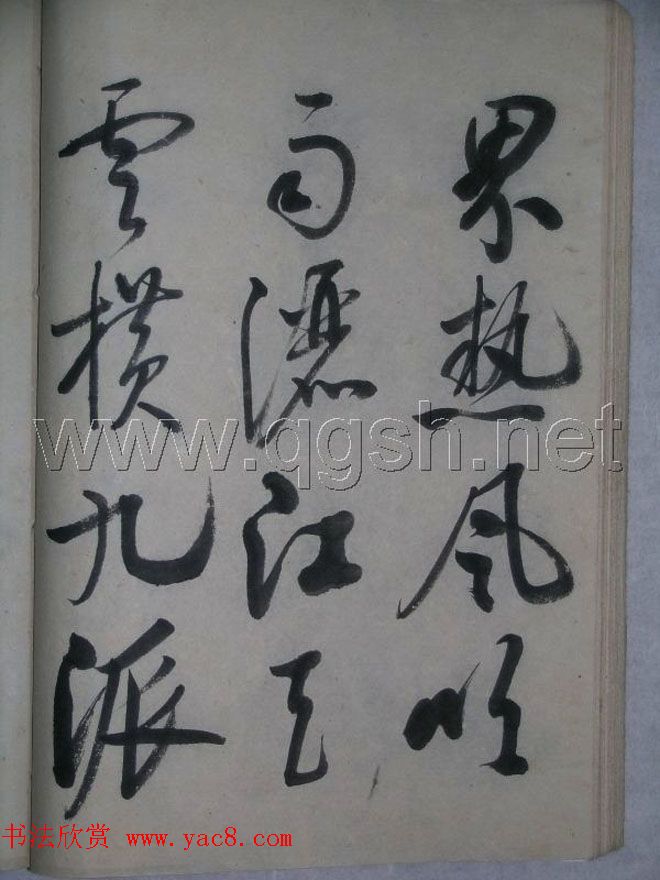 界热风吹
雨洒江天
云横九派
www.qgsh.net
书法欣赏 www.yac8.com